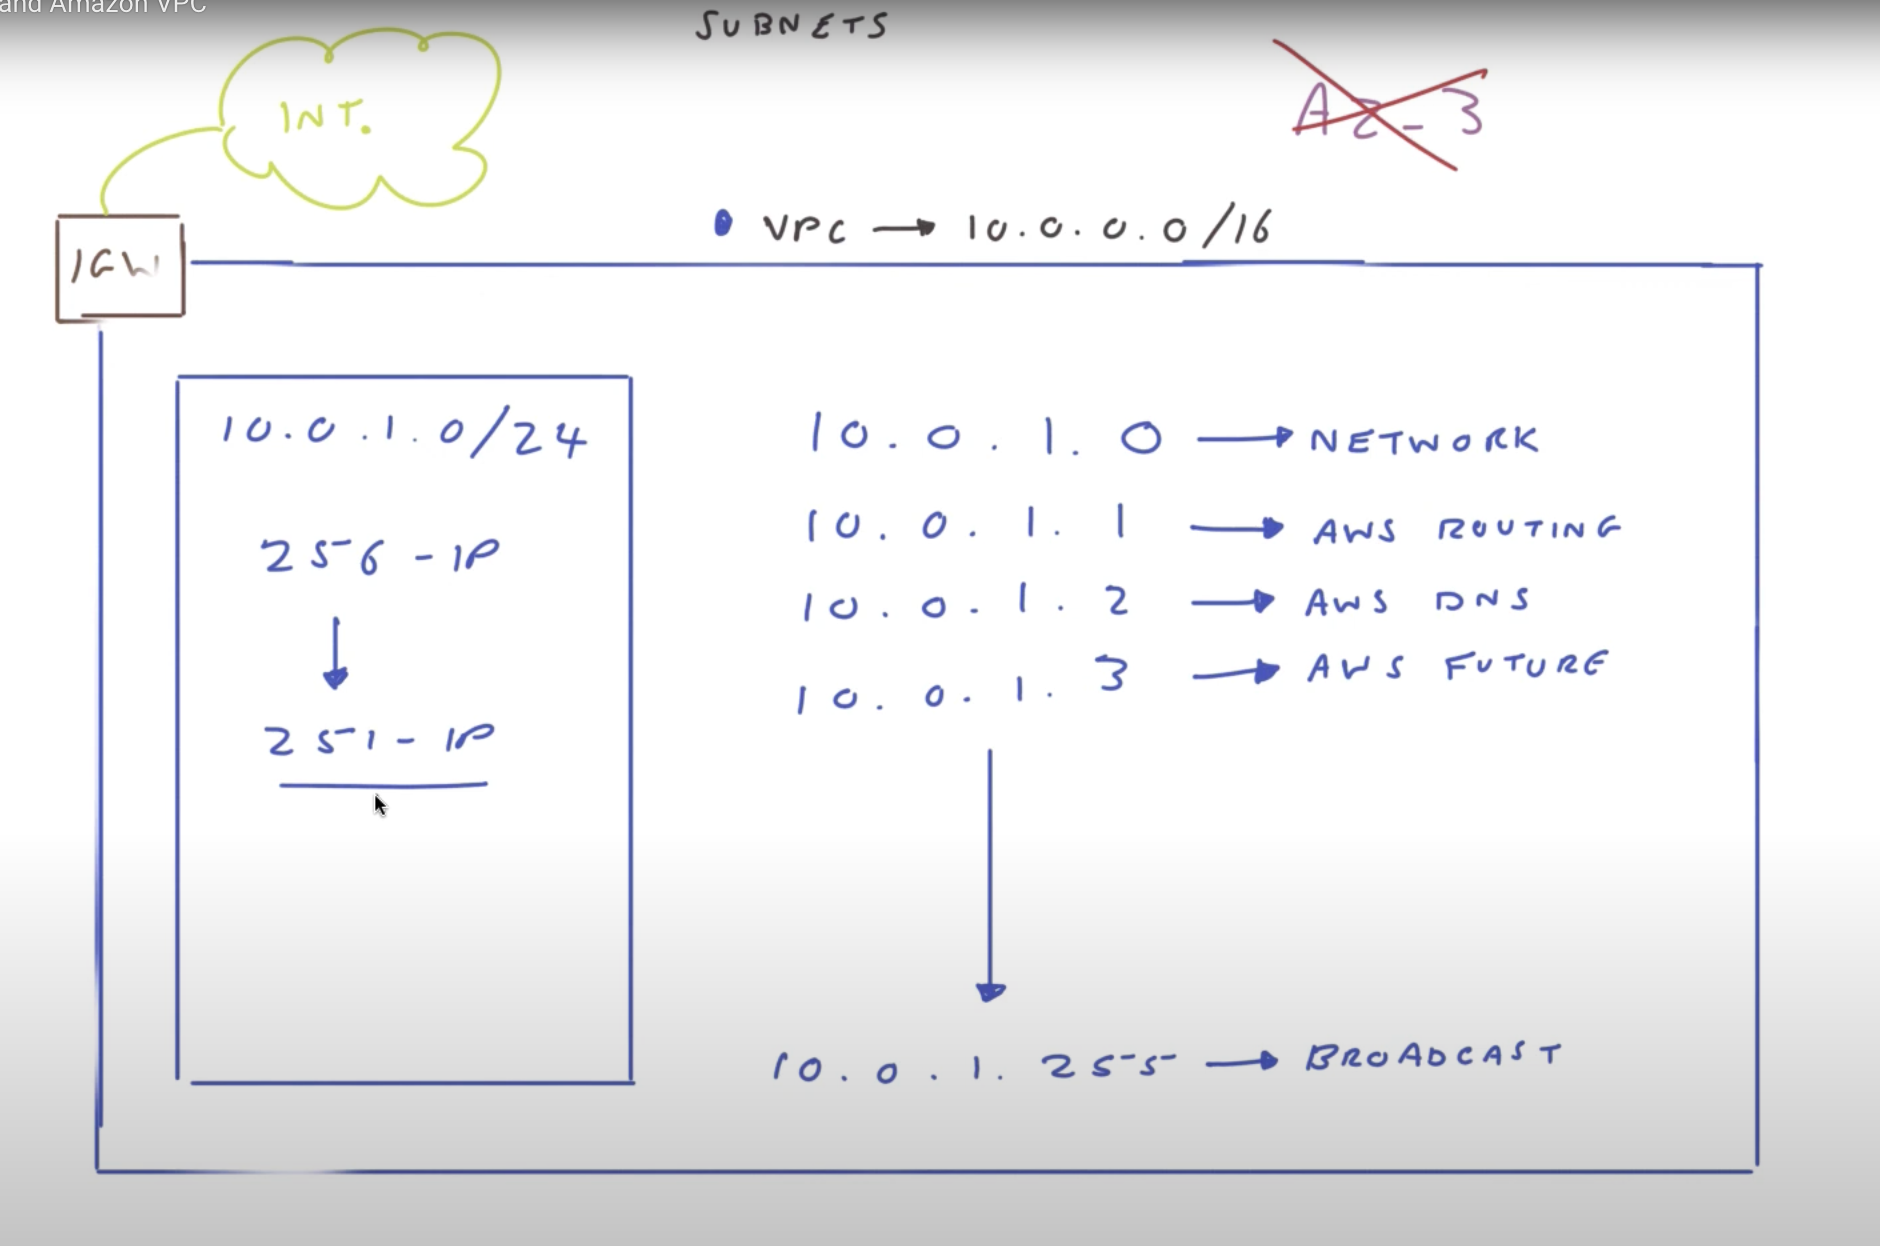 and Amazon VPC
SUBNETS
INT.
AZ-3
IGW
VPC → 10.0.0.0/16
10.0.1.0/24
256-IP
251-IP
10.0.1.0 → NETWORK
10.0.1.1 → AWS ROUTING
10.0.1.2 → AWS DNS
10.0.1.3 → AWS FUTURE
10.0.1.255 → BROADCAST